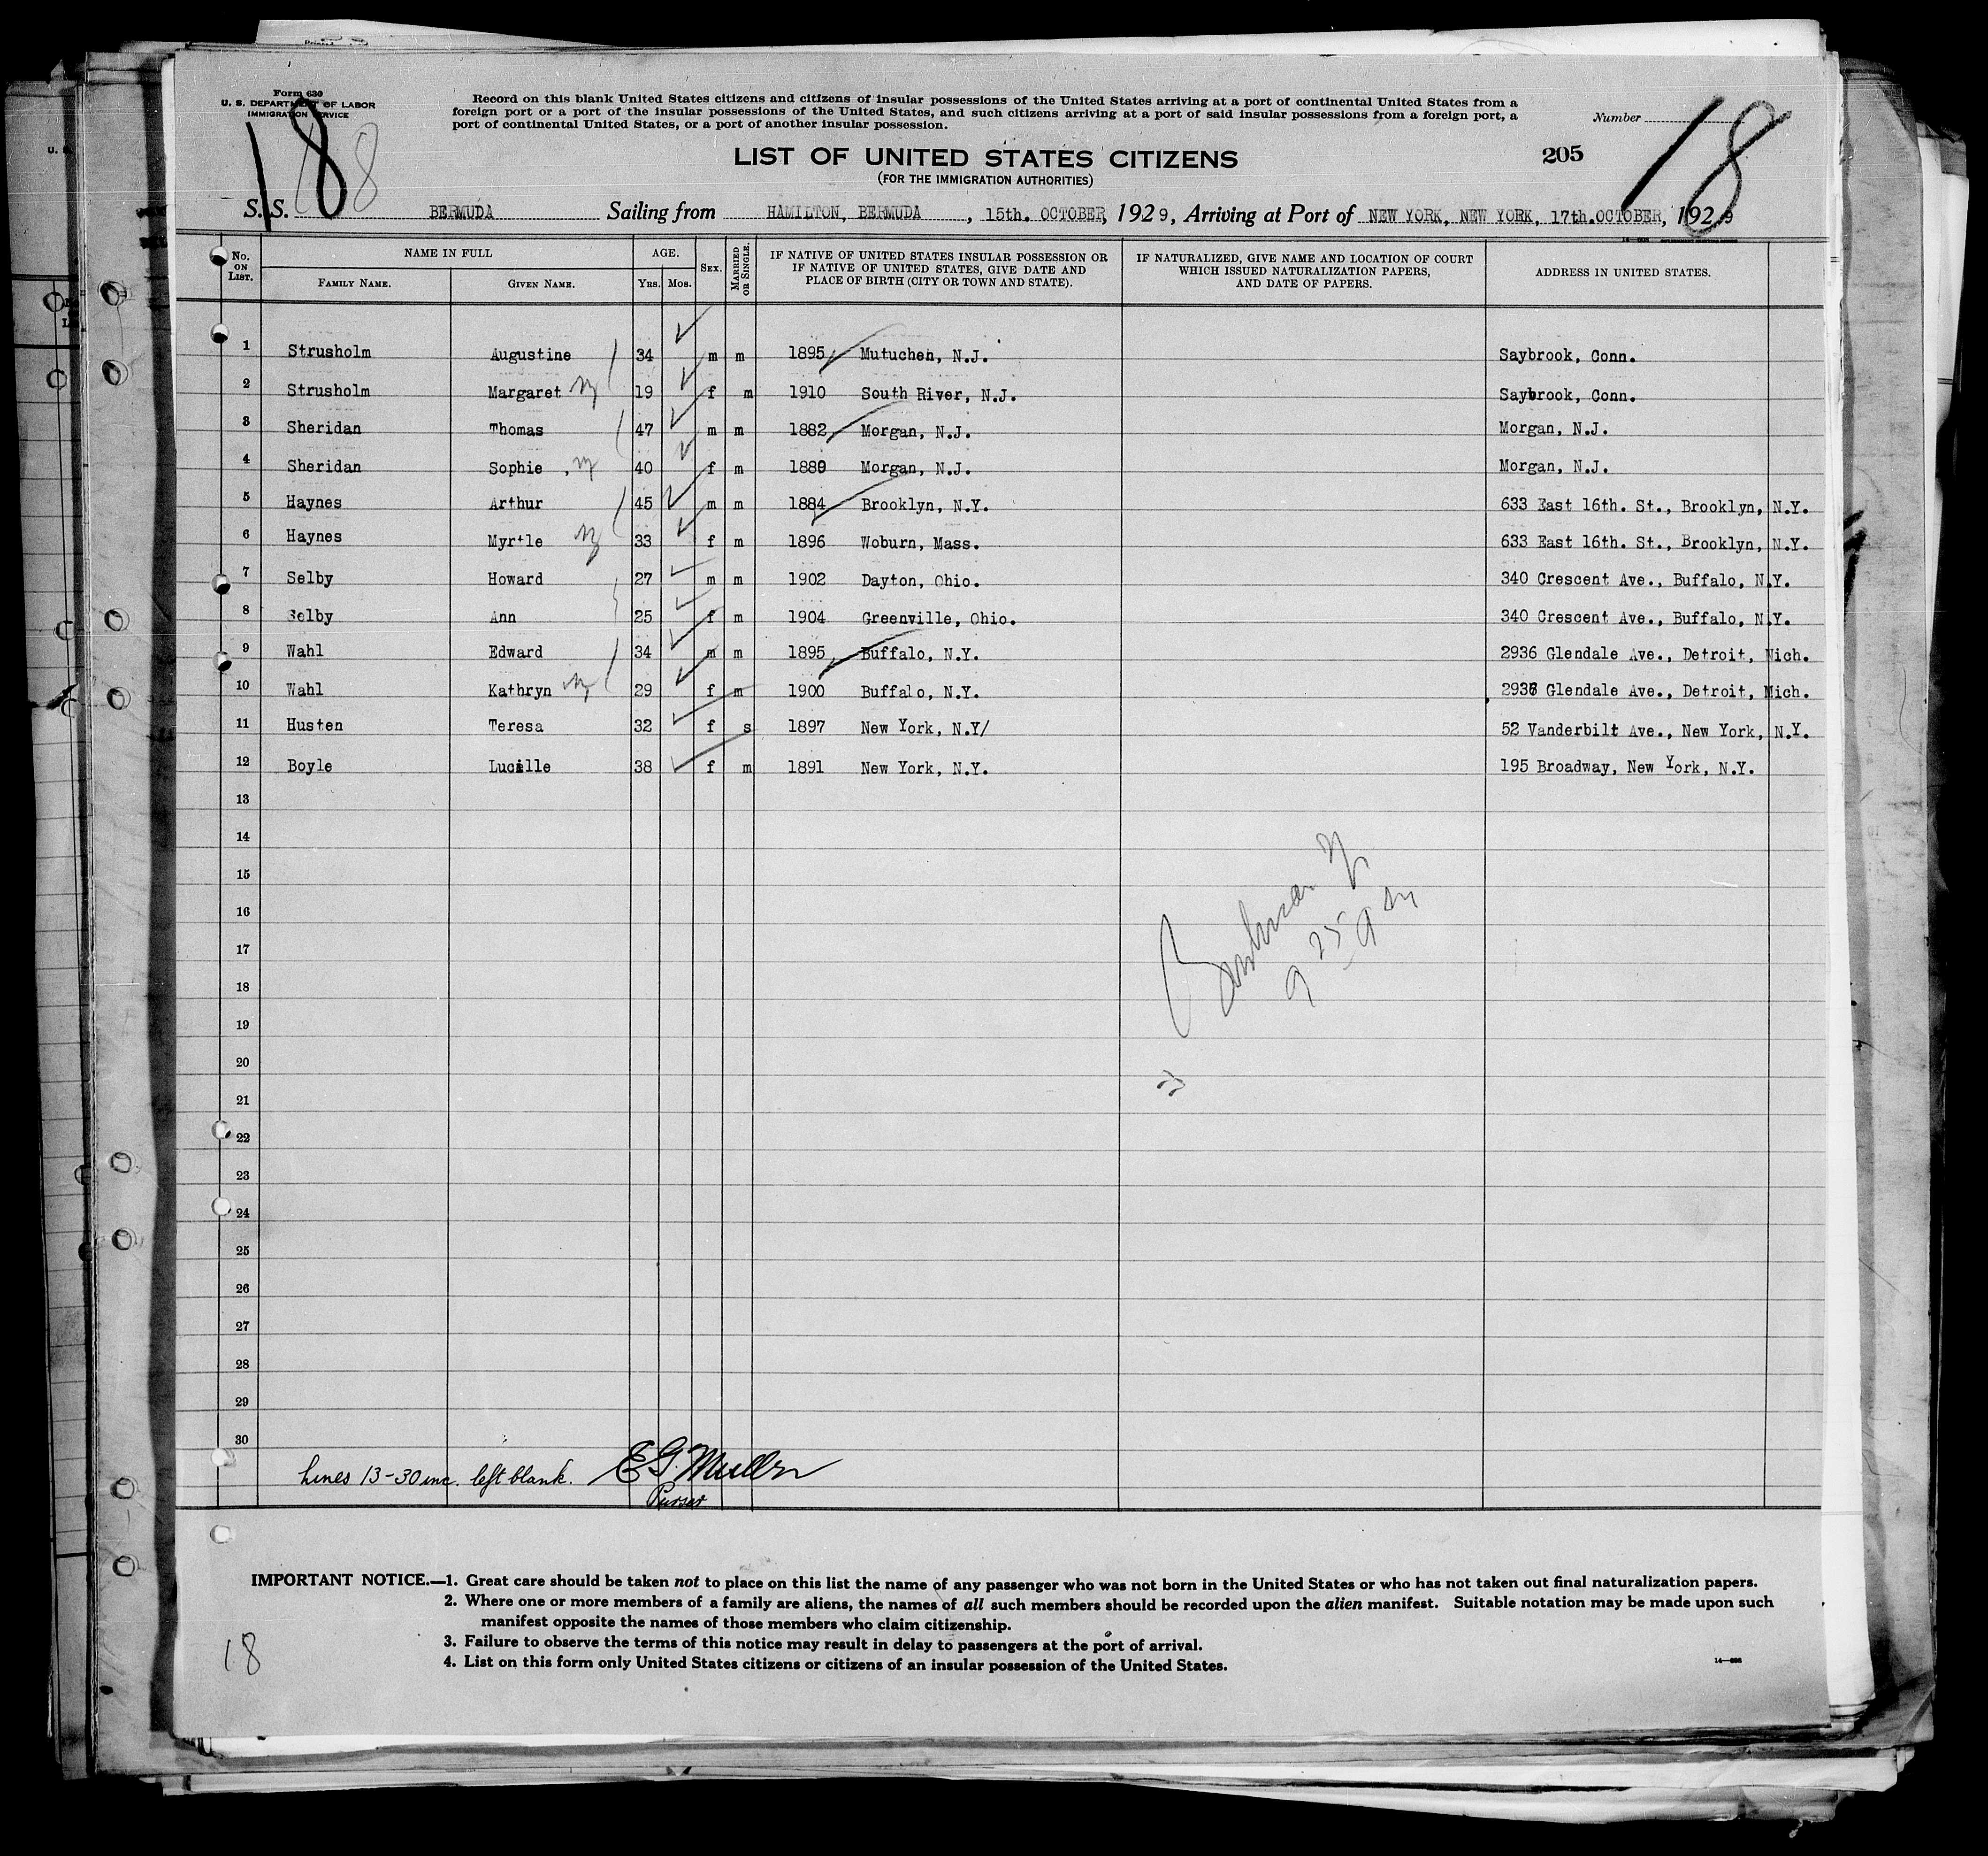 Form 630
U. S. DEPARTMENT OF LABOR
IMMIGRATION SERVICE
18
Record on this blank United States citizens and citizens of insular possessions of the United States arriving at a port of continental United States from a
foreign port or a port of the insular possessions of the United States, and such citizens arriving at a port of said insular possessions from a foreign port, a
port of continental United States, or a port of another insular possession.
Number
18
LIST OF UNITED STATES CITIZENS
205
(FOR THE IMMIGRATION AUTHORITIES)
S. S. BERMUDA Sailing from HAMILTON, BERMUDA, 15th. OCTOBER, 1929, Arriving at Port of NEW YORK, NEW YORK, 17th.OCTOBER, 1929
No. ON LIST. NAME IN FULL FAMILY NAME. GIVEN NAME. AGE. Yrs. Mos. SEX. MARRIED OR SINGLE. IF NATIVE OF UNITED STATES INSULAR POSSESSION OR IF NATIVE OF UNITED STATES, GIVE DATE AND PLACE OF BIRTH (CITY OR TOWN AND STATE). IF NATURALIZED, GIVE NAME AND LOCATION OF COURT WHICH ISSUED NATURALIZATION PAPERS, AND DATE OF PAPERS. ADDRESS IN UNITED STATES.
1 Strusholm Augustine 34 m m 1895 Mutuchen, N.J. Saybrook, Conn.
2 Strusholm Margaret 19 f m 1910 South River, N.J. Saybrook, Conn.
3 Sheridan Thomas 47 m m 1882 Morgan, N.J. Morgan, N.J.
4 Sheridan Sophie 40 f m 1889 Morgan, N.J. Morgan, N.J.
5 Haynes Arthur 45 m m 1884 Brooklyn, N.Y. 633 East 16th. St., Brooklyn, N.Y.
6 Haynes Myrtle 33 f m 1896 Woburn, Mass. 633 East 16th. St., Brooklyn, N.Y.
7 Selby Howard 27 m m 1902 Dayton, Ohio. 340 Crescent Ave., Buffalo, N.Y.
8 Selby Ann 25 f m 1904 Greenville, Ohio. 340 Crescent Ave., Buffalo, N.Y.
9 Wahl Edward 34 m m 1895 Buffalo, N.Y. 2936 Glendale Ave., Detroit, Mich.
10 Wahl Kathryn 29 f m 1900 Buffalo, N.Y. 2936 Glendale Ave., Detroit, Mich.
11 Husten Teresa 32 f s 1897 New York, N.Y/ 52 Vanderbilt Ave., New York, N.Y.
12 Boyle Lucille 38 f m 1891 New York, N.Y. 195 Broadway, New York, N.Y.
13
14
15
16
17
18
19
20
21
22
23
24
25
26
27
28
29
30
Lines 13-30 inc. left blank. E G Muller
Purser
IMPORTANT NOTICE.—1. Great care should be taken not to place on this list the name of any passenger who was not born in the United States or who has not taken out final naturalization papers.
2. Where one or more members of a family are aliens, the names of all such members should be recorded upon the alien manifest. Suitable notation may be made upon such
manifest opposite the names of those members who claim citizenship.
3. Failure to observe the terms of this notice may result in delay to passengers at the port of arrival.
4. List on this form only United States citizens or citizens of an insular possession of the United States.
18